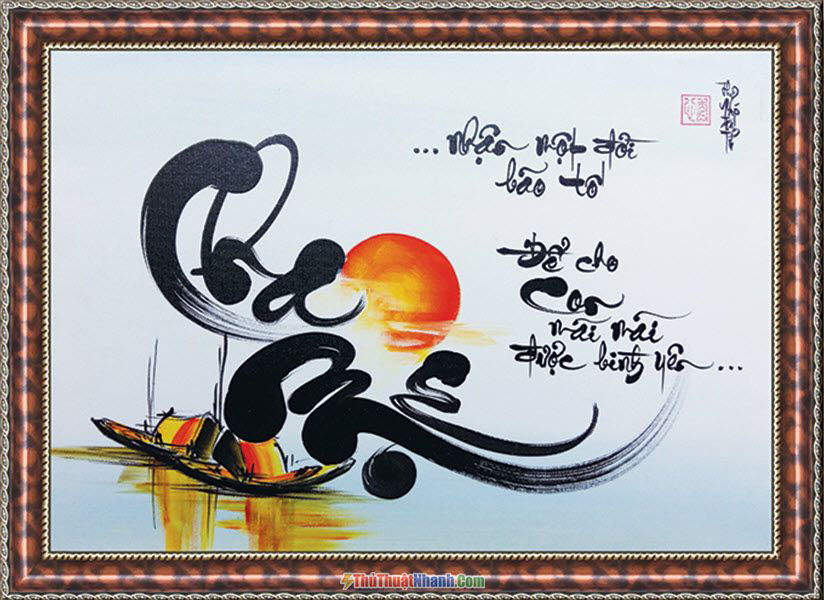 Cha
Mẹ
... nhận một đời
bão tố
Để cho
Con
mãi mãi
được bình yên ...
ThủThuậtNhanh.Com